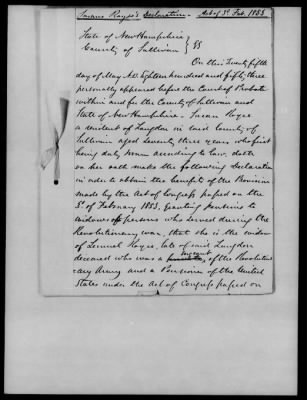 Susan Royce's Declaration. Act of 3d Feb. 1853
State of New Hampshire }
County of Sullivan } SS
On this Twenty fifth
day of May A.D. Eighteen hundred and fifty three
personally appeared before the Court of Probate
within and for the County of Sullivan and
State of New Hampshire - Susan Royce
a resident of Langdon in said County of
Sullivan aged Seventy three years, who first
being duly sworn according to law, doth
on her oath make the following Declaration
in order to obtain the benefit of the Provision
made by the Act of Congress passed on the
3d of February 1853, Granting pensions to
widows of persons who served during the
Revolutionary war, that she is the widow
of Lemuel Royce, late of said Langdon
deceased who was a Sergeant of the Revolution
ary Army and a Pensioner of the United
States under the Act of Congress passed on